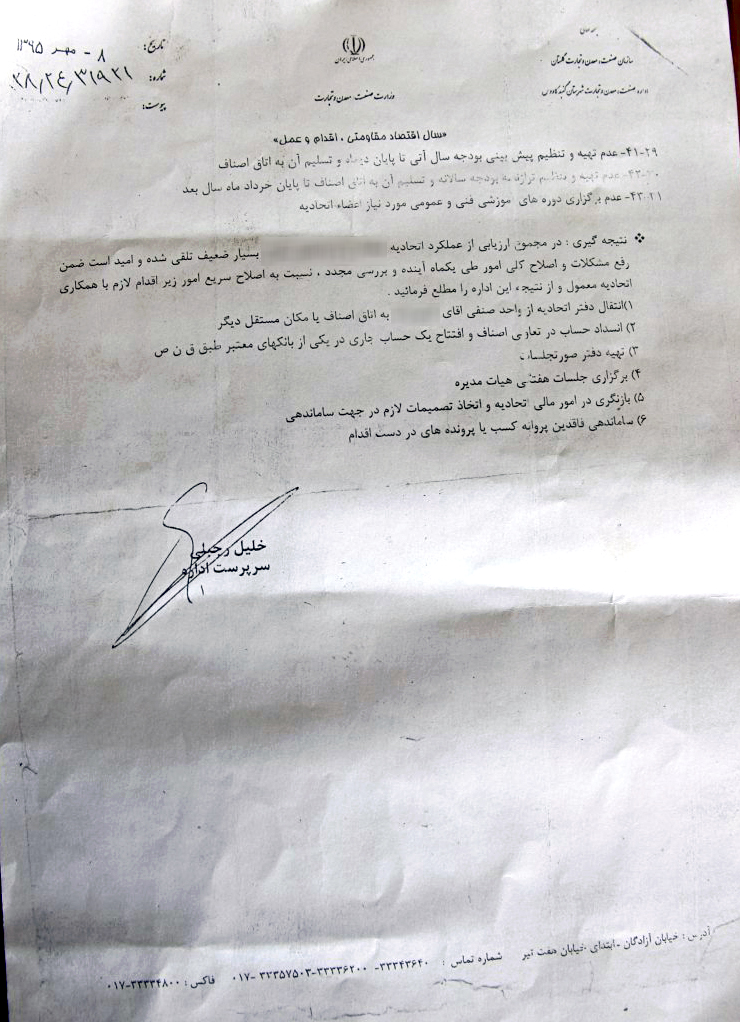 بسمه تعالی
سازمان صنعت، معدن و تجارت گلستان
اداره صنعت، معدن و تجارت شهرستان گنبد کاووس
جمهوری اسلامی ایران
وزارت صنعت، معدن و تجارت
تاریخ: ۸ - مهر ۱۳۹۵
شماره: ۲۸/۲۴/۳۱۹۲۱
پیوست:
«سال اقتصاد مقاومتی ، اقدام و عمل»
۴۱-۲۹- عدم تهیه و تنظیم پیش بینی بودجه سال آتی تا پایان دیماه و تسلیم آن به اتاق اصناف
۴۲-۳۰- عدم تهیه و تنظیم ترازنامه بودجه سالانه و تسلیم آن به اتاق اصناف تا پایان خرداد ماه سال بعد
۴۳-۳۱- عدم برگزاری دوره های آموزشی فنی و عمومی مورد نیاز اعضاء اتحادیه
❖ نتیجه گیری : در مجموع ارزیابی از عملکرد اتحادیه بسیار ضعیف تلقی شده و امید است ضمن
رفع مشکلات و اصلاح کلی امور طی یکماه آینده و بررسی مجدد ، نسبت به اصلاح سریع امور زیر اقدام لازم با همکاری
اتحادیه معمول و از نتیجه این اداره را مطلع فرمائید .
۱)انتقال دفتر اتحادیه از واحد صنفی اقای به اتاق اصناف یا مکان مستقل دیگر
۲) انسداد حساب در تعاونی اصناف و افتتاح یک حساب جاری در یکی از بانکهای معتبر طبق ق ن ص
۳) تهیه دفتر صورتجلسات
۴) برگزاری جلسات هفتگی هیات مدیره
۵) بازنگری در امور مالی اتحادیه و اتخاذ تصمیمات لازم در جهت ساماندهی
۶) ساماندهی فاقدین پروانه کسب یا پرونده های در دست اقدام
خلیل رجبلی
سرپرست اداره
آدرس : خیابان آزادگان -ابتدای خیابان هفت تیر شماره تماس : ۳۳۳۴۳۶۴۰- ۳۳۳۳۶۲۰۰-۳۳۳۵۷۵۰۳ -۰۱۷ فاکس : ۳۳۳۳۴۸۰۰-۰۱۷